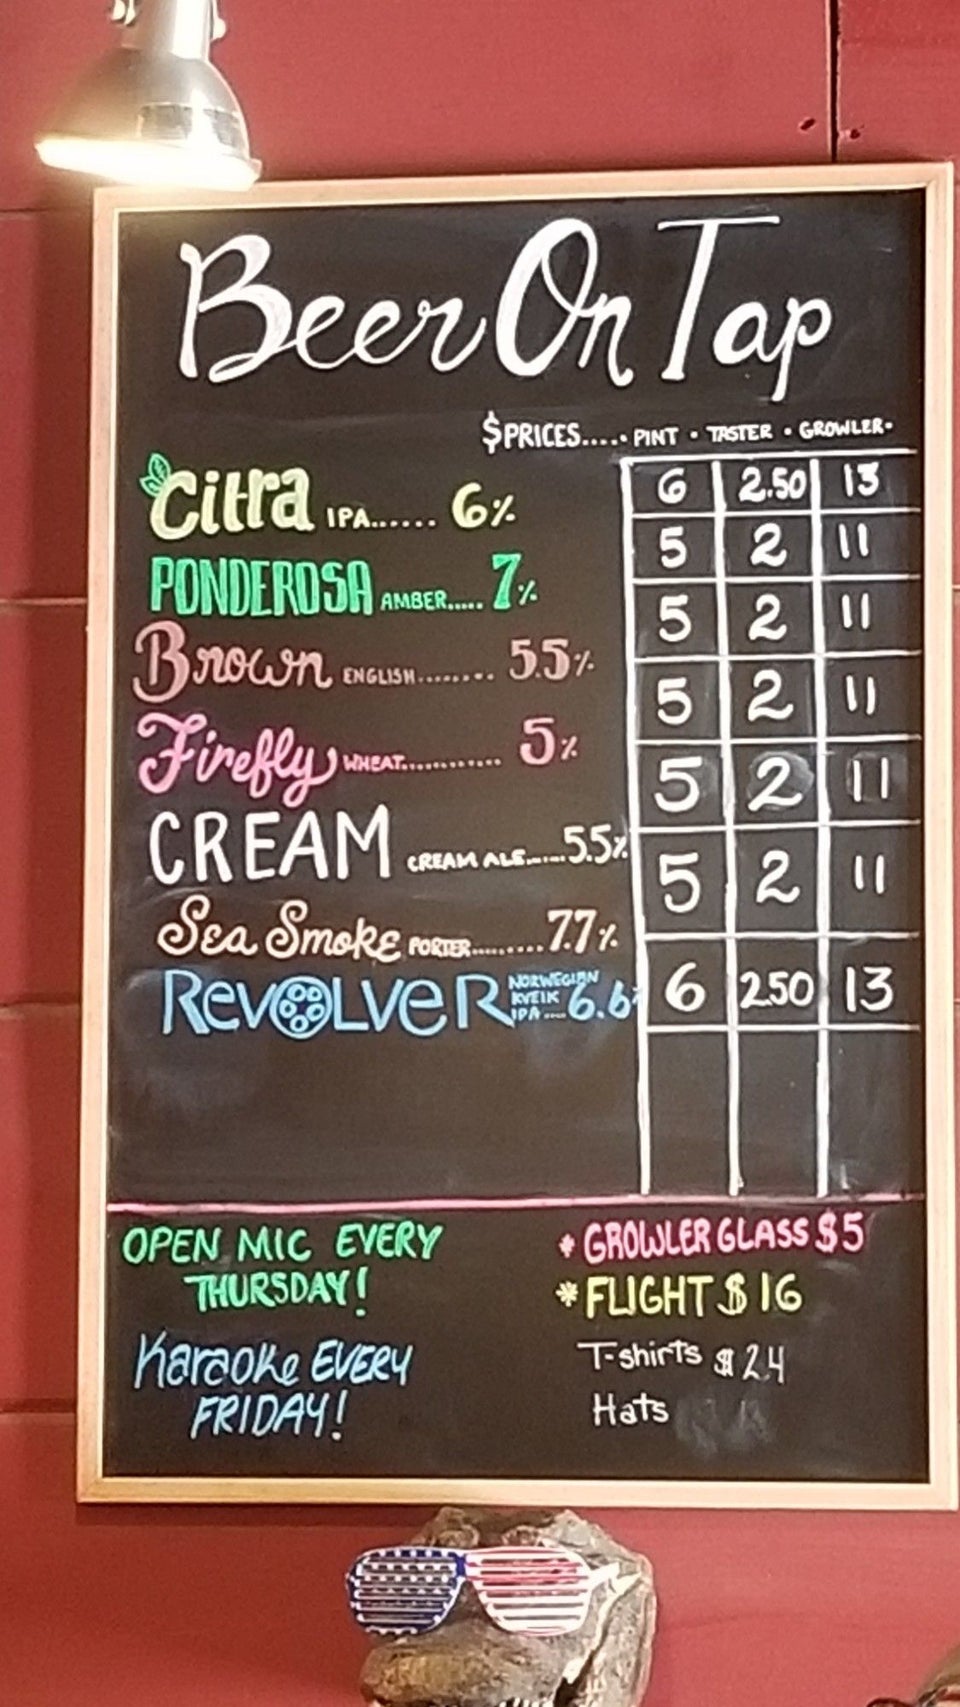 Beer On Tap
$PRICES..... • PINT • TASTER • GROWLER •
Citra IPA...... 6% 6 2.50 13
PONDEROSA AMBER..... 7% 5 2 11
Brown ENGLISH........ 5.5% 5 2 11
Firefly WHEAT............ 5% 5 2 11
CREAM CREAM ALE....... 5.5% 5 2 11
Sea Smoke PORTER......... 7.7% 5 2 11
REVOLVER NORWEGIAN KVEIK IPA.... 6.6% 6 2.50 13
OPEN MIC EVERY
THURSDAY!
Karaoke EVERY
FRIDAY!
* GROWLER GLASS $5
* FLIGHT $16
T-shirts $24
Hats